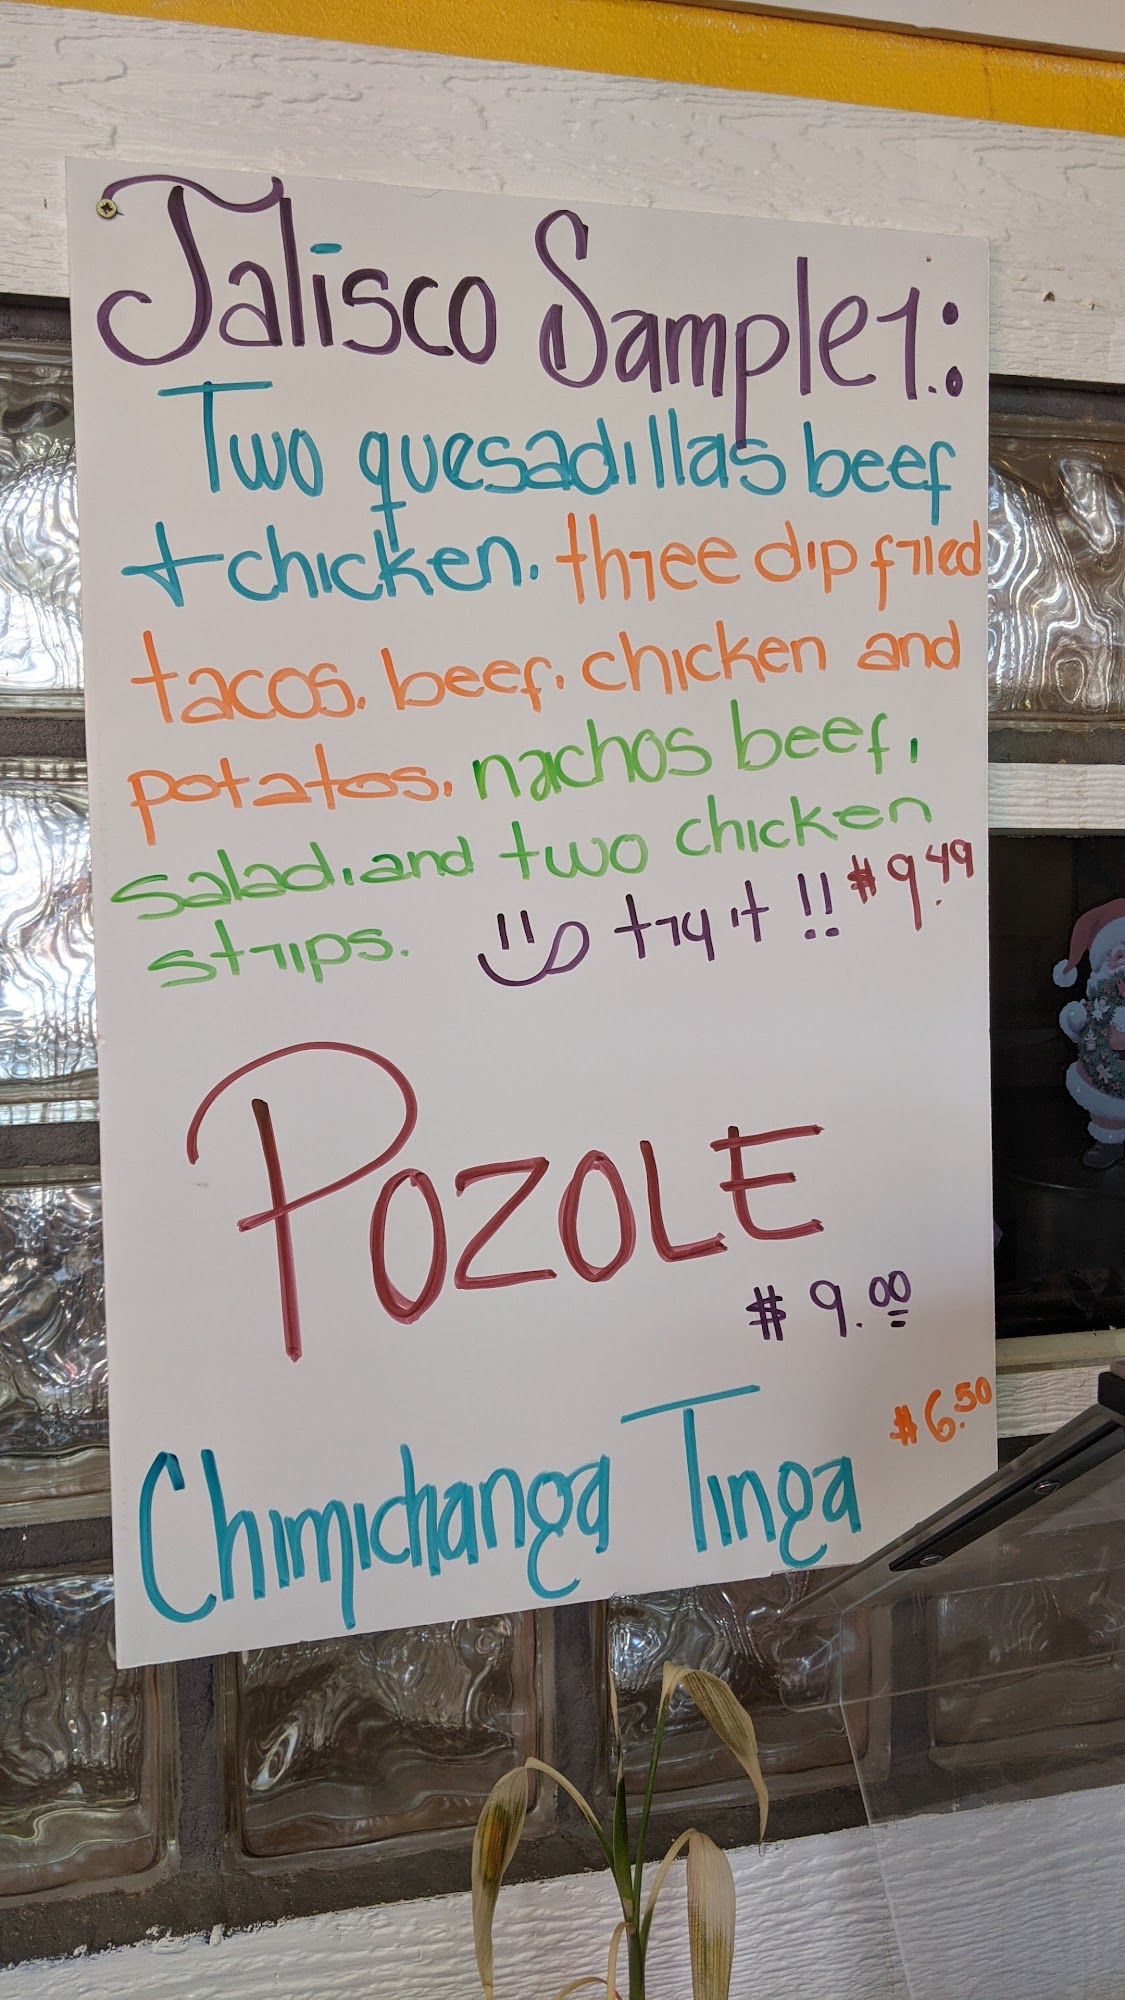 Jalisco Sampler:
Two quesadillas beef
+ chicken. three dip fried
tacos. beef. chicken and
potatos. nachos beef,
salad, and two chicken
strips. try it !! $9.49
POZOLE
$ 9.00
$6.50
Chimichanga Tinga